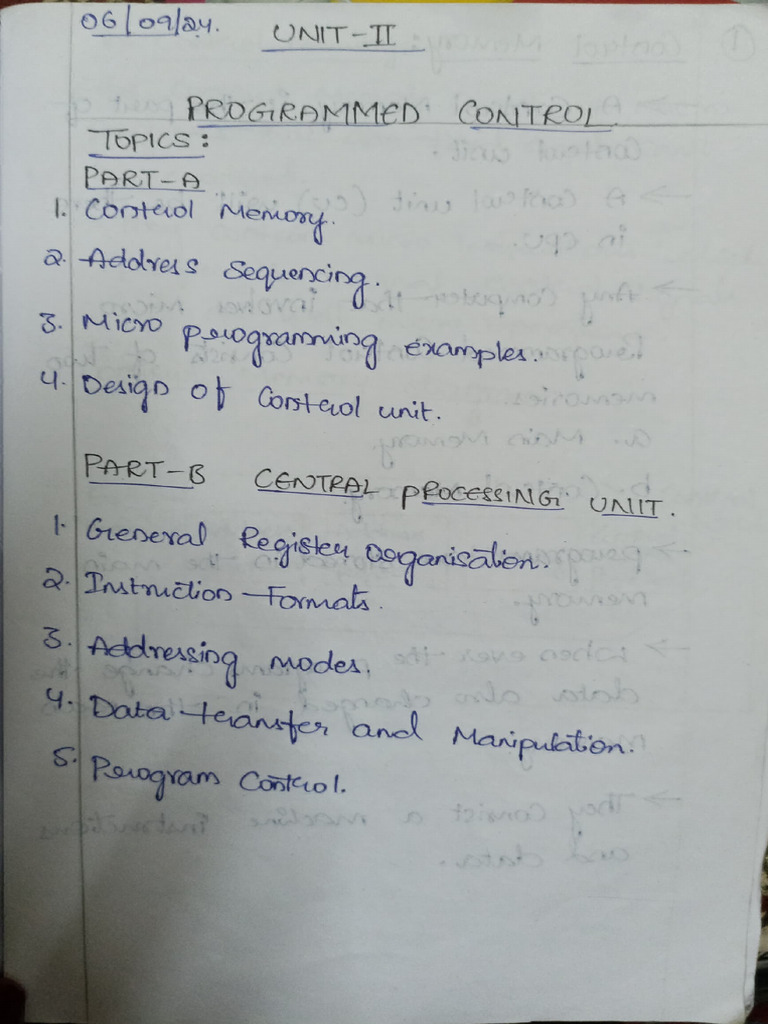 06/09/24.
UNIT-II
PROGRAMMED CONTROL
TOPICS:
PART-A
1. Control Memory.
2. Address Sequencing.
3. Micro programming examples.
4. Design of Control unit.
PART-B CENTRAL PROCESSING UNIT.
1. General Register Organisation.
2. Instruction Formats.
3. Addressing modes.
4. Data transfer and Manipulation.
5. Program Control.